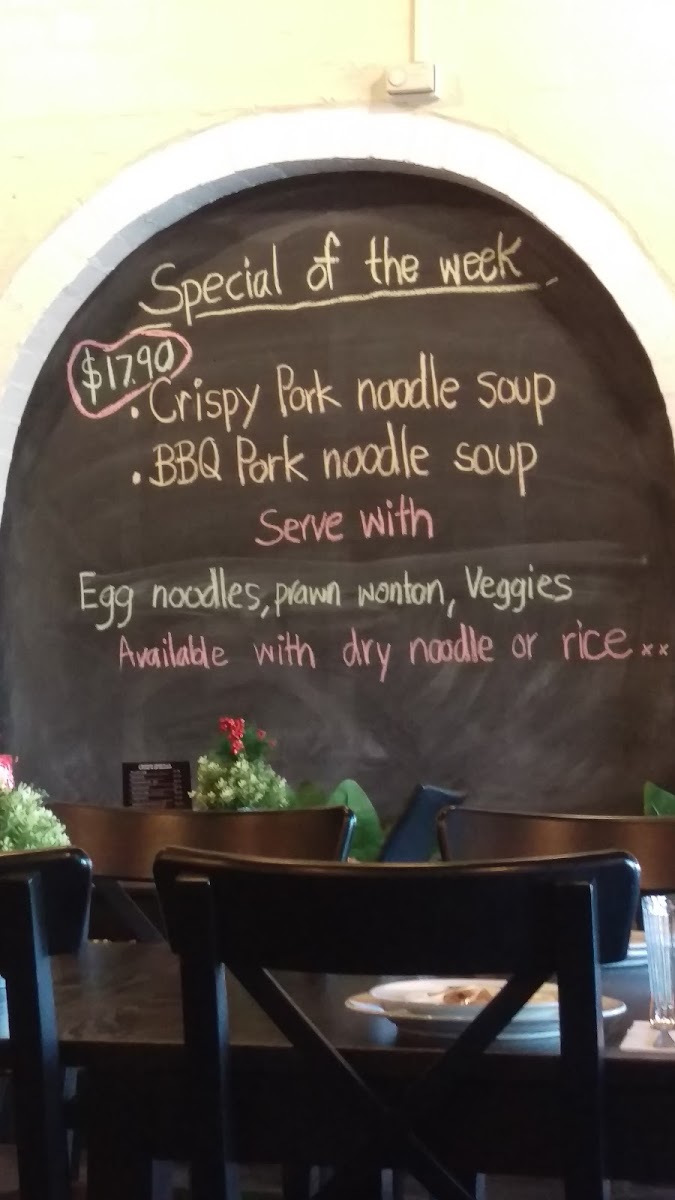 Special of the week
$17.90
• Crispy Pork noodle soup
• BBQ Pork noodle soup
Serve with
Egg noodles, prawn wonton, Veggies
Available with dry noodle or rice xx